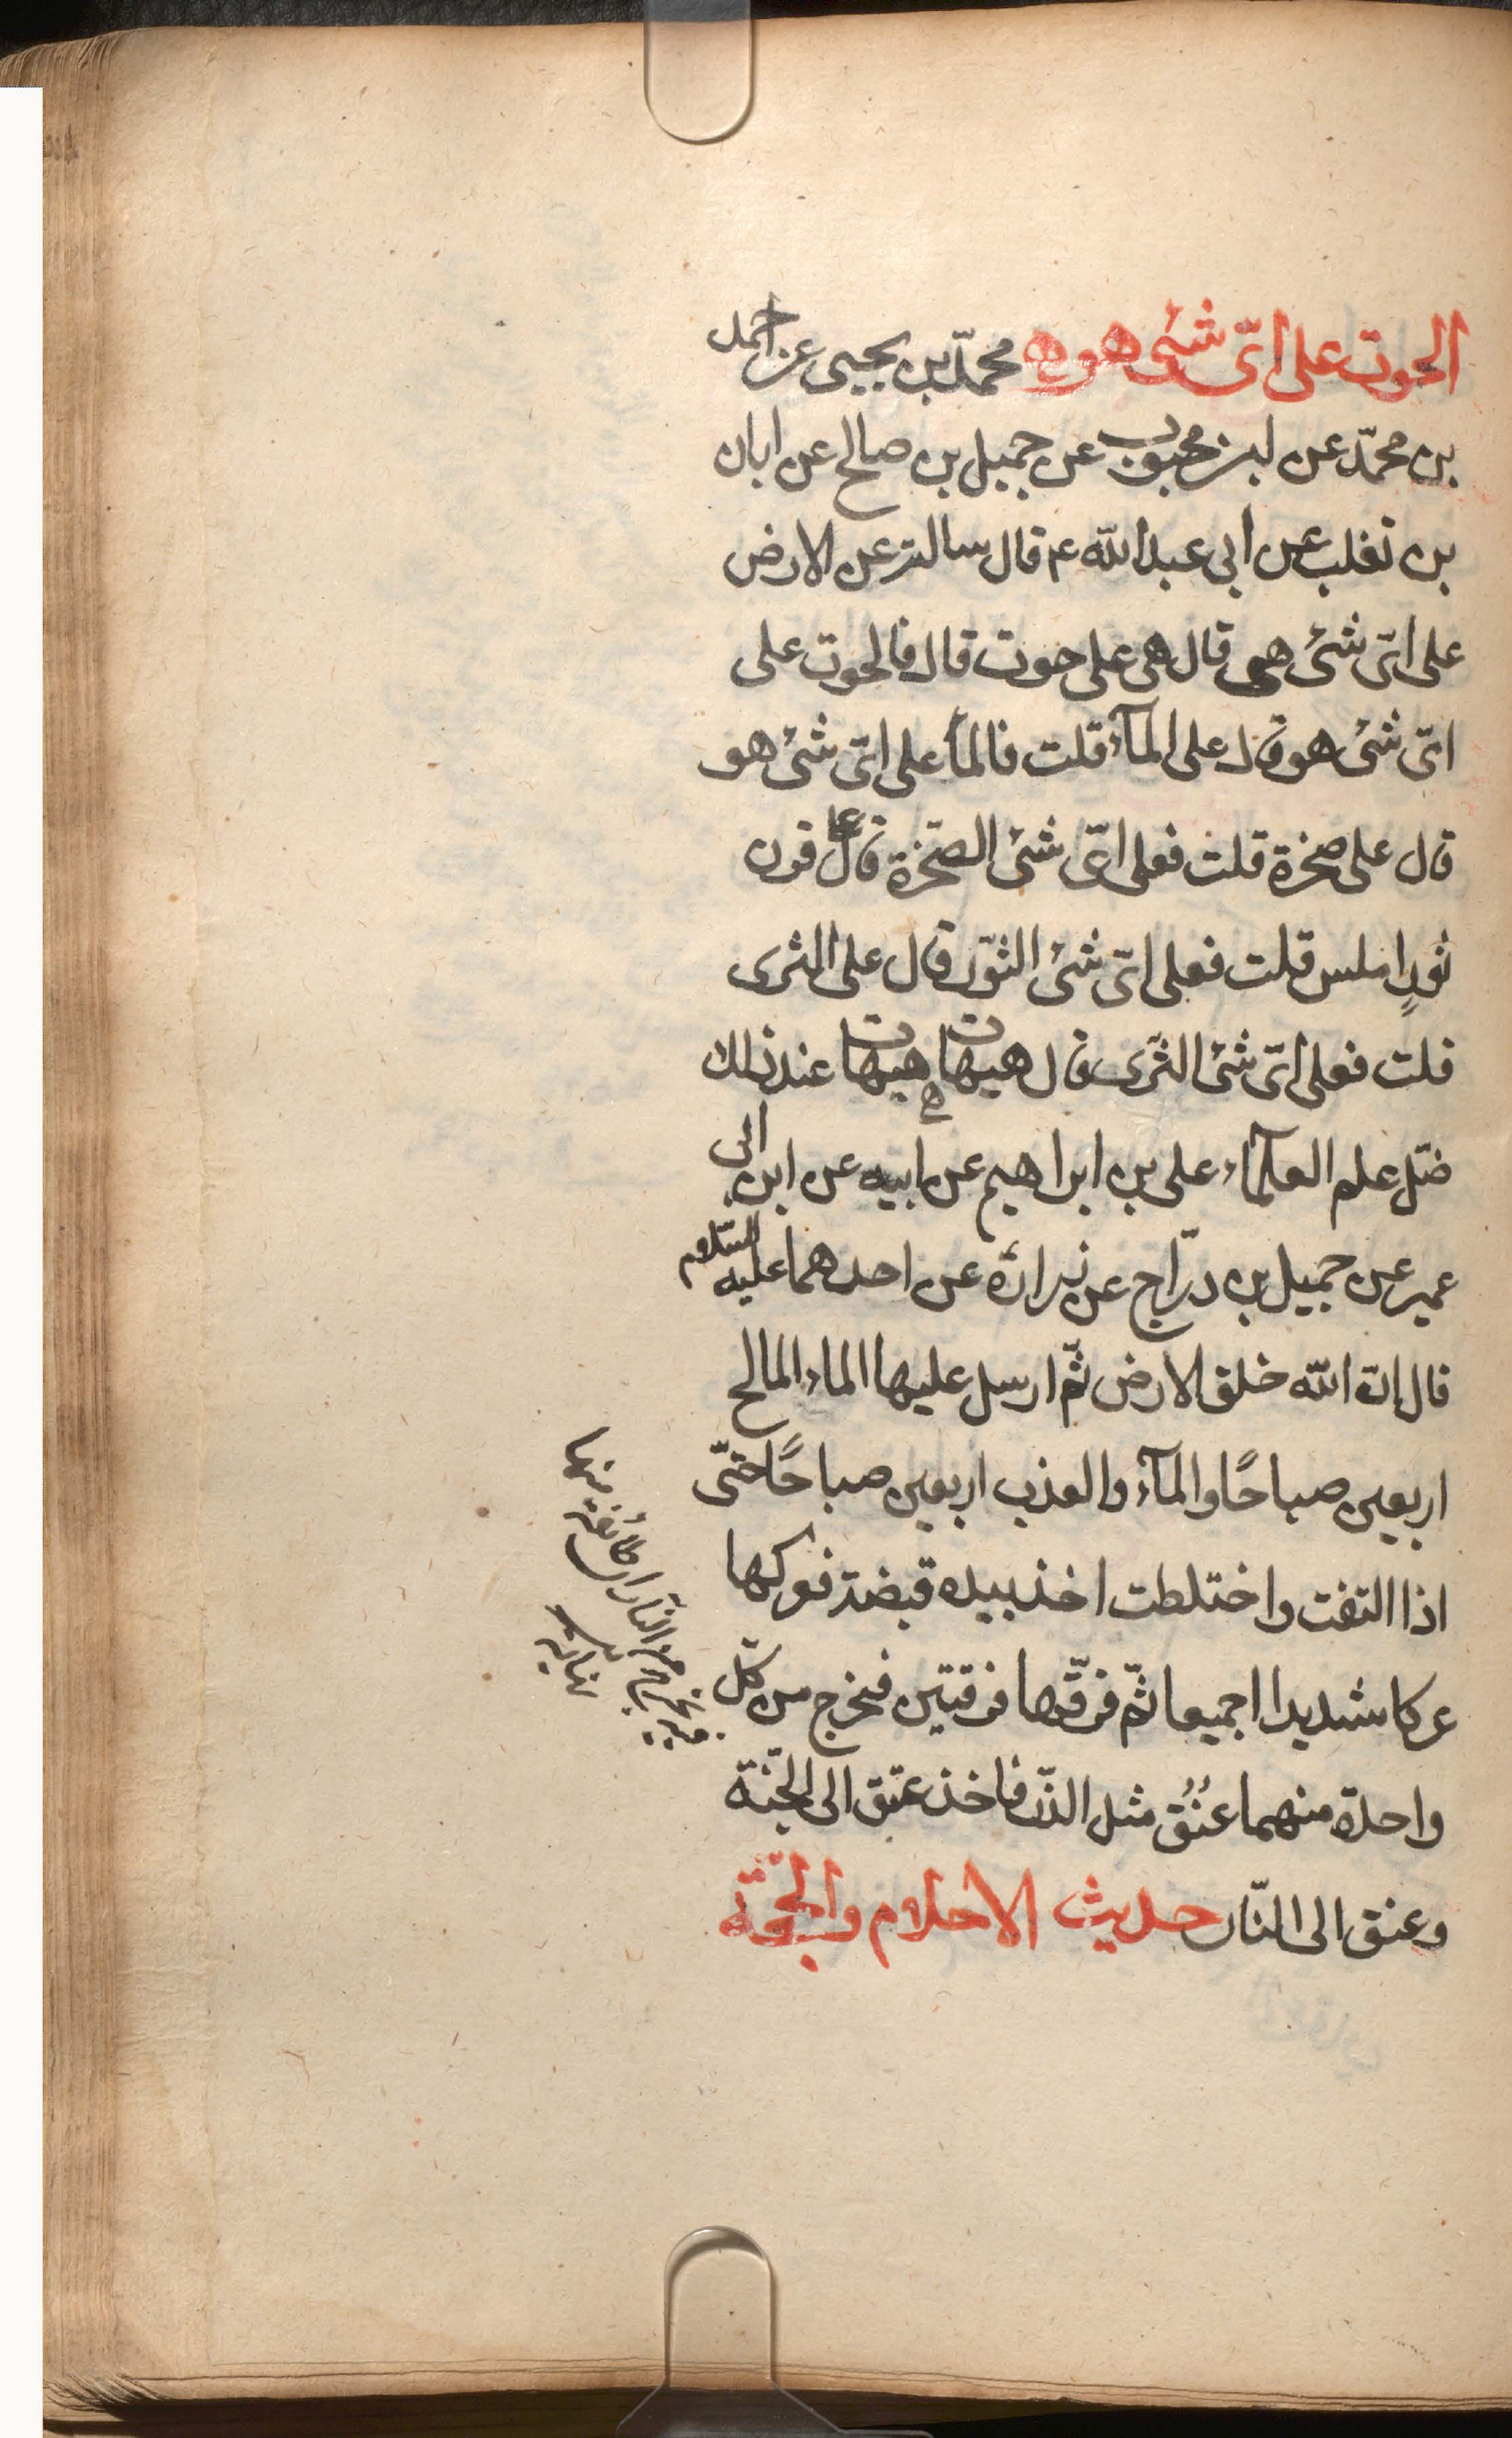 الحوت على اىّ شئ هو ه محمّد بن يحيى عن احمد
بن محمّد عن ابن محبوب عن جميل بن صالح عن ابان
بن تغلب عن ابى عبد الله ع م قال سالته عن الارض
على اىّ شئ هى قال هى على حوت قال فالحوت على
اىّ شئ هو قال على المآء قلت فالمآ على اىّ شئ هو
قال على صخرة قلت فعلى اىّ شئ الصّخرة قال على قرن
ثورٍ املس قلت فعلى اىّ شئ الثّور قال على الثرى
قلت فعلى اىّ شئ الثّرى قال هيهات هيهات عند ذلك
ضلّ علم العلمآء على بن ابراهيم عن ابيه عن ابن ابى
عمير عن جميل بن درّاج عن زرارة عن احدهما عليه السّلام
قال ان الله خلق الارض ثمّ ارسل عليها الماء المالح
اربعين صباحًا والمآء والعذب اربعين صباحًا حتّى
اذا التقت واختلطت اخذ بيده قبضة فعركها
عركا شديدا اجميعا ثمّ فرّقها فرقتين فخرج من كلّ
واحدة منهما عُنُق مثل الذّر فاخذ عنق الى الجّنة
وعنق الى النّار حديث الاحلام والحجّة
من النّار
منها
نهاية